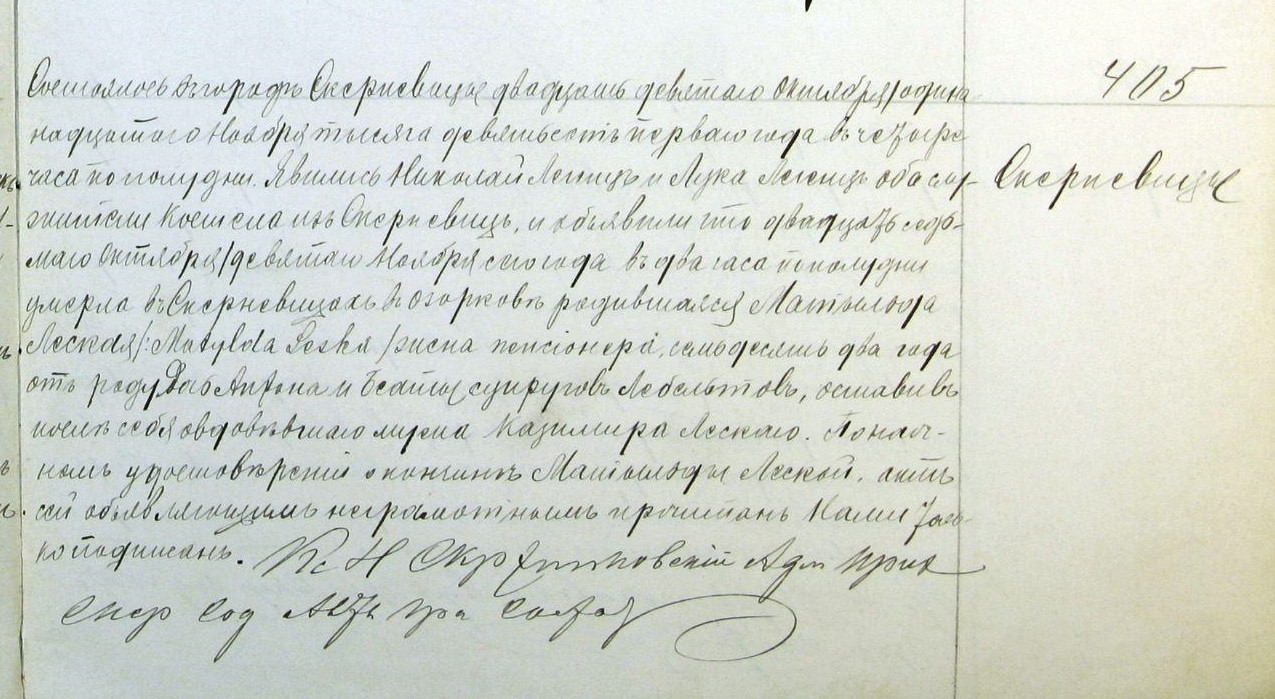 405
Скерневицы
Состоялось въ городѣ Скерневицы двадцать девятаго Октября/одина
надцатого Ноября тысяча девятьсотъ перваго года въ четыре
часа по полудни. Явились Николай и Лука оба слу-
жители Костела изъ Скерневицъ, и объявили что двадцать седь-
маго Октября/девятаго Ноября сего года въ два часа пополудни
умерла въ Скерневицахъ въ Озорковѣ родившаяся Матыльда
Леская/: Matylda Leska / жена пенсіонера, семьдесятъ два года
отъ роду, Антона и Беаты супруговъ, оставивъ
послѣ себя овдовѣвшаго мужа Казимира Лескаго. По нагл-
номъ удостовѣреніи о кончинѣ Матыльды Леской, актъ
сей объявляющимъ неграмотнымъ прочитанъ Нами толь
ко подписанъ. Кс Н Адм прих
Скер Сод Акты гра Сост